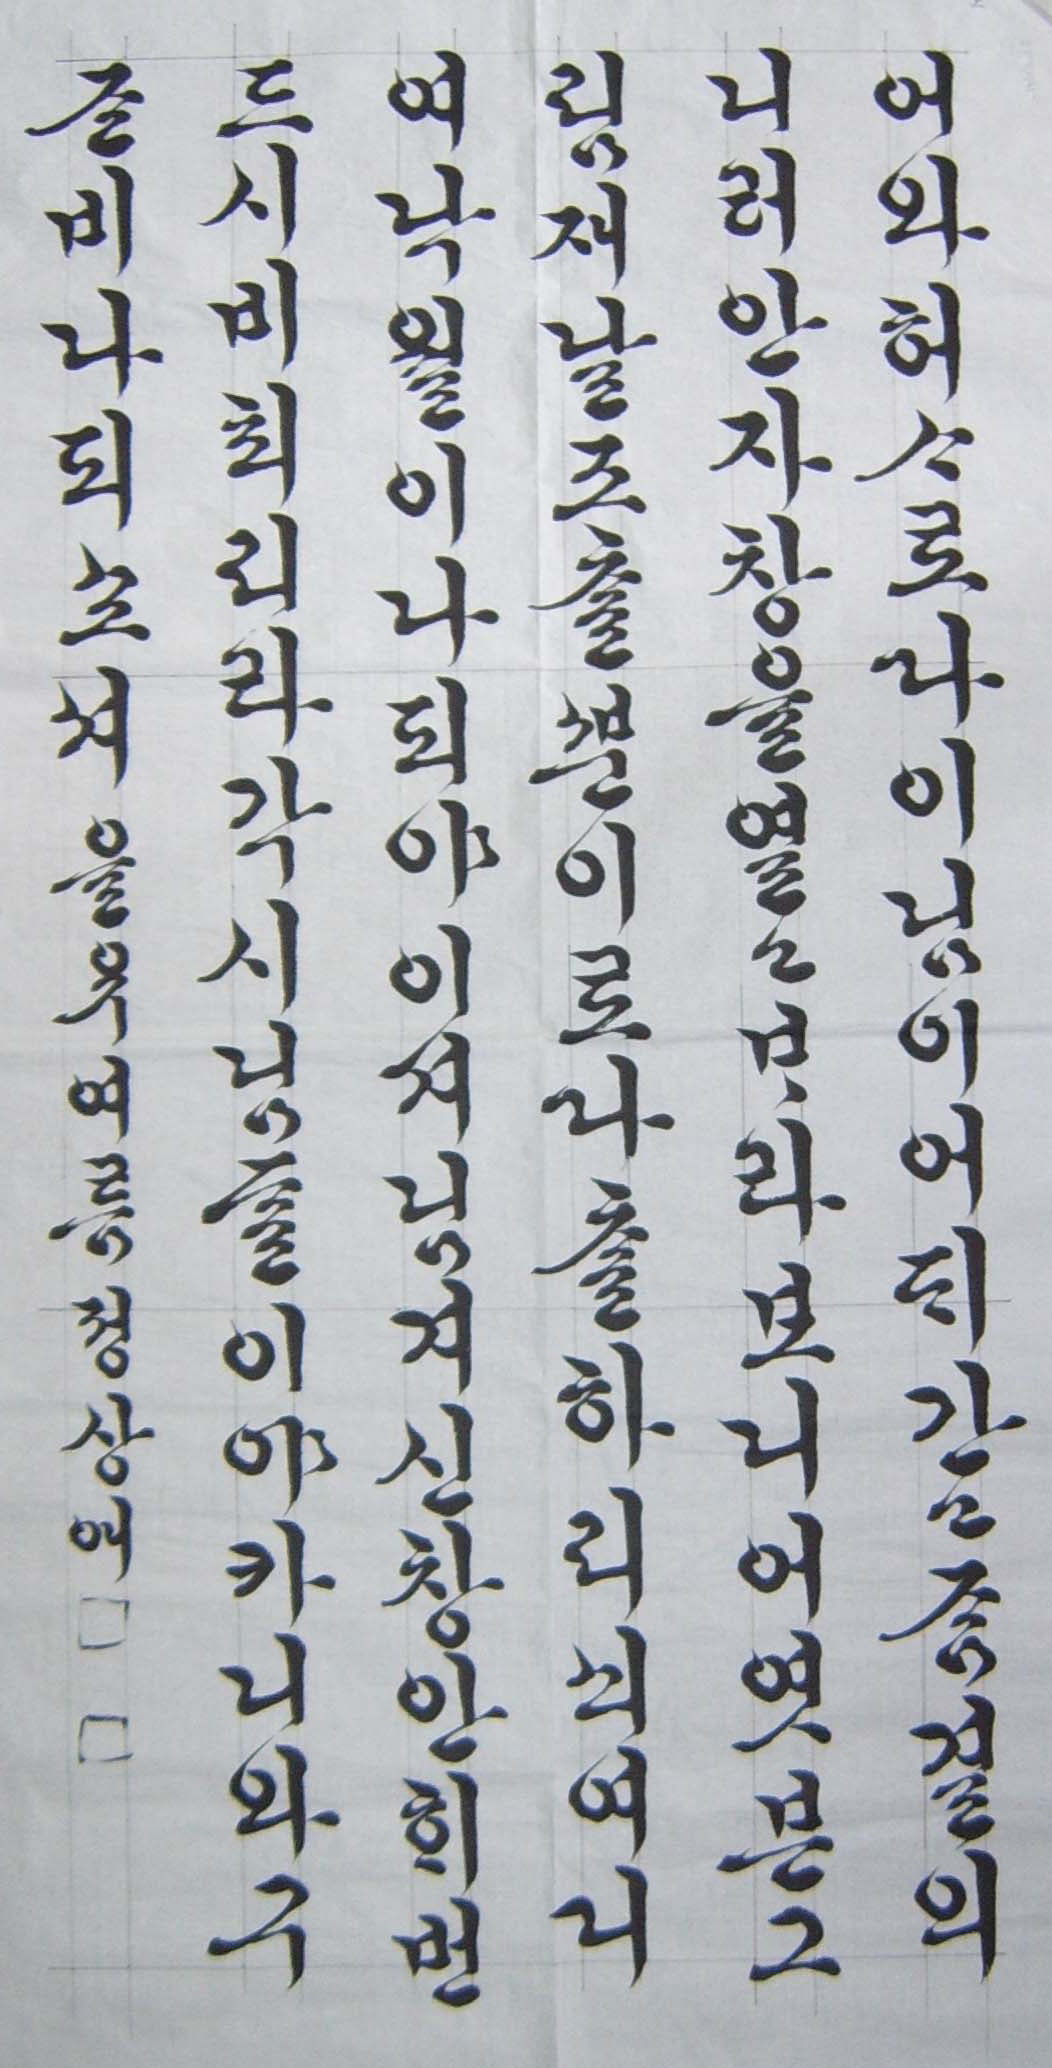 어와허ᄉᆞ로다이님이어ᄃᆡ간고ᄌᆞᆷ결의
니러안자창을열고ᄇᆞ라보니어엿븐그
림재날조ᄎᆞᆯᄲᅮᆫ이로다ᄎᆞᆯ하리싀여디
여낙월이나되야이셔님겨신창안ᄒᆡ번
드시비최리라각시님ᄃᆞᆯ이야카니와구
즌비나되쇼셔 을유여름 정상예